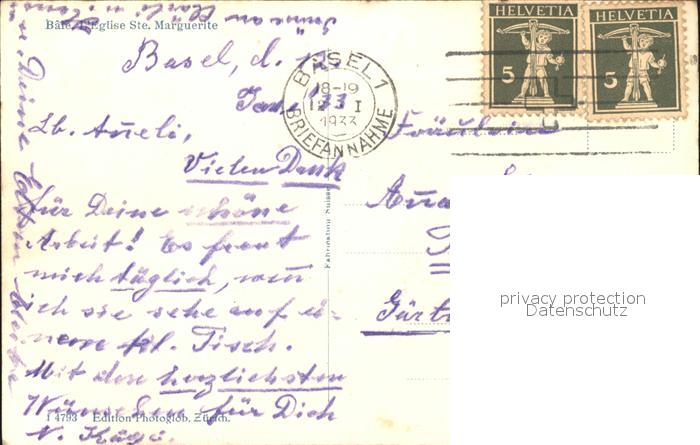 Bâle, L'Eglise Ste. Marguerite
Basel, d. 12.
Jan. 33
Lb. Aueli,
Vielen Dank
für Deine schöne
Arbeit! Es freut
mich täglich, wenn
ich sie sehe auf ei-
nem kl. Tisch.
Mit den herzlichsten
Wünschen für Dich
u. Deine
14793 Edition Photoglob, Zürich.
Fabrication Suisse
HELVETIA
5
HELVETIA
5
BASEL 1
18-19
12. I
1933
BRIEFANNAHME
Fräulein
Gärt
privacy protection
Datenschutz